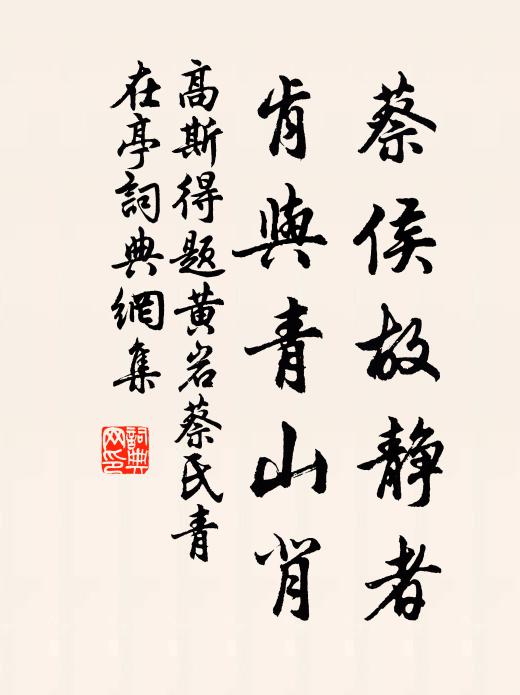 蔡侯故静者
肯與青山背
高斯得题黄岩蔡氏青
在亭詞典網集
詞典
网印